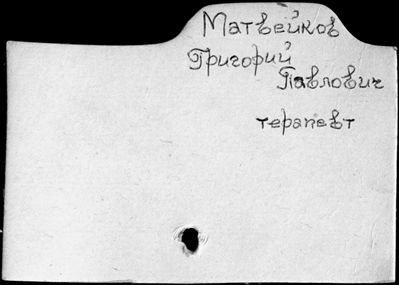 Матвейков
Григорий
Павлович
терапевт